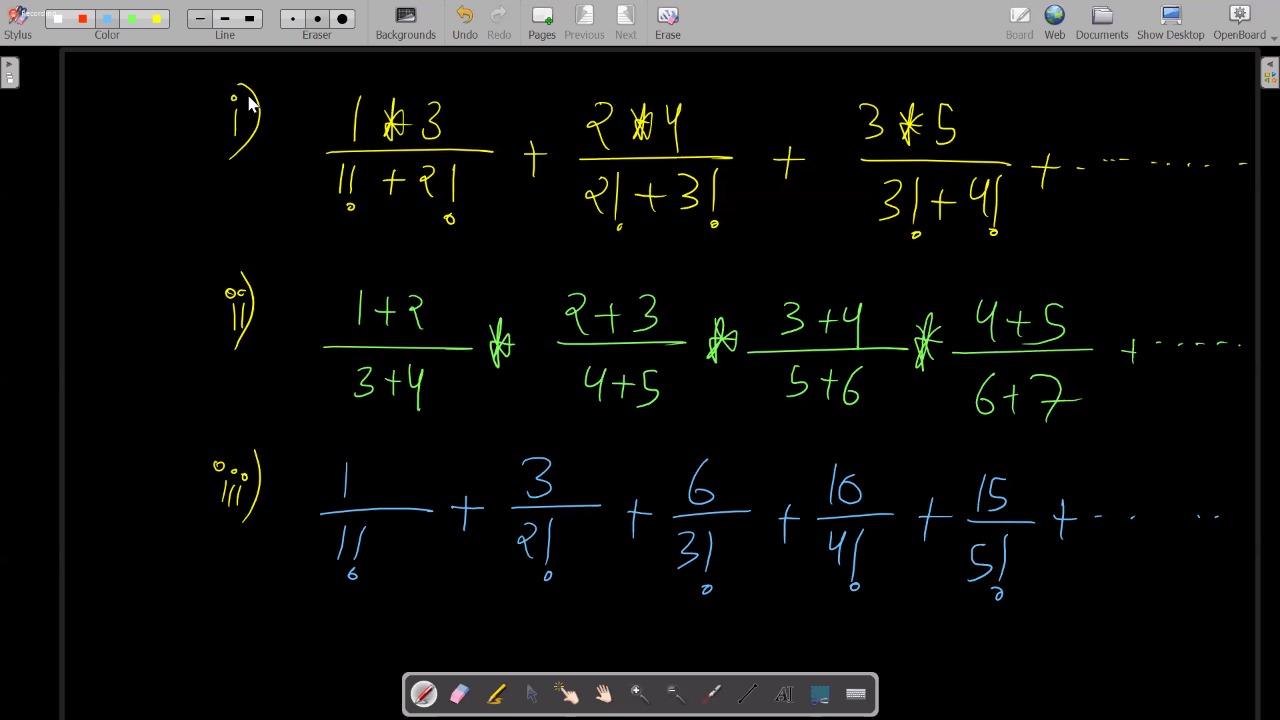 Recording
Stylus Color Line Eraser Backgrounds Undo Redo Pages Previous Next Erase Board Web Documents Show Desktop OpenBoard
i) 1 * 3 / 1! + 2! + 2 * 4 / 2! + 3! + 3 * 5 / 3! + 4! + - --- ........
ii) 1+2 / 3+4 * 2+3 / 4+5 * 3+4 / 5+6 * 4+5 / 6+7 + ------
iii) 1 / 1! + 3 / 2! + 6 / 3! + 10 / 4! + 15 / 5! + -- - --
AI